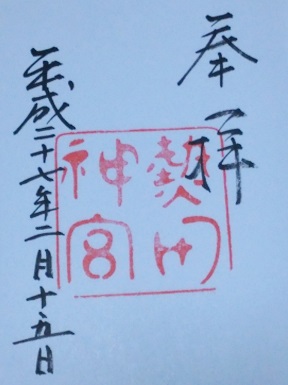 奉拝
熱田
神宮
平成二十七年二月十五日